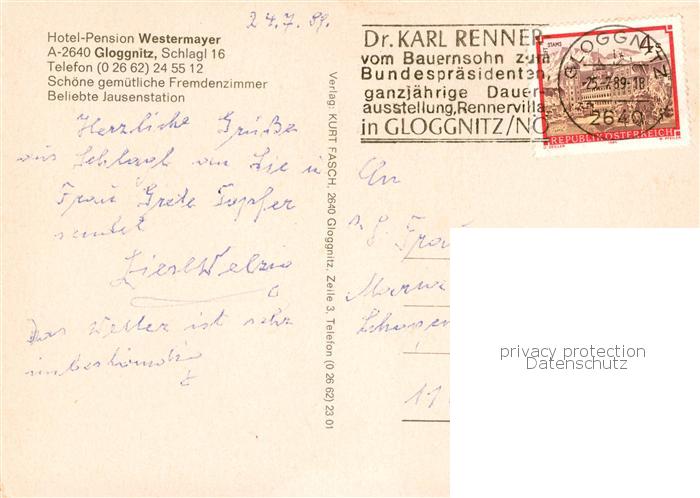 24.7.89.
Hotel-Pension Westermayer
A-2640 Gloggnitz, Schlagl 16
Telefon (0 26 62) 24 55 12
Schöne gemütliche Fremdenzimmer
Beliebte Jausenstation
Herzliche Grüße
aus Schlagl an Sie
Frau Grete
sendet
Das Wetter ist sehr
unbeständig
Verlag: KURT FASCH, 2640 Gloggnitz, Zeile 3, Telefon (0 26 62) 23 01
Dr. KARL RENNER-
vom Bauernsohn zum
Bundespräsidenten,
ganzjährige Dauer-
ausstellung, Rennervilla
in GLOGGNITZ/NÖ
GLOGGNITZ
-25.-7.89-18
2640
STAMS
4
REPUBLIK ÖSTERREICH
An
Frau
privacy protection
Datenschutz